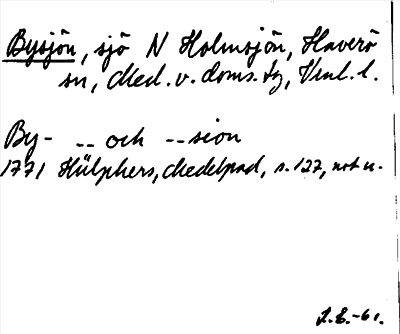 Bysjön, sjö N Holmsjön, Haverö
sn, Med. v. doms. tg, Vnl. l.
By- -- och --sion
1771 Hülphers, Medelpad, s. 127, not u.
L.E.-61.